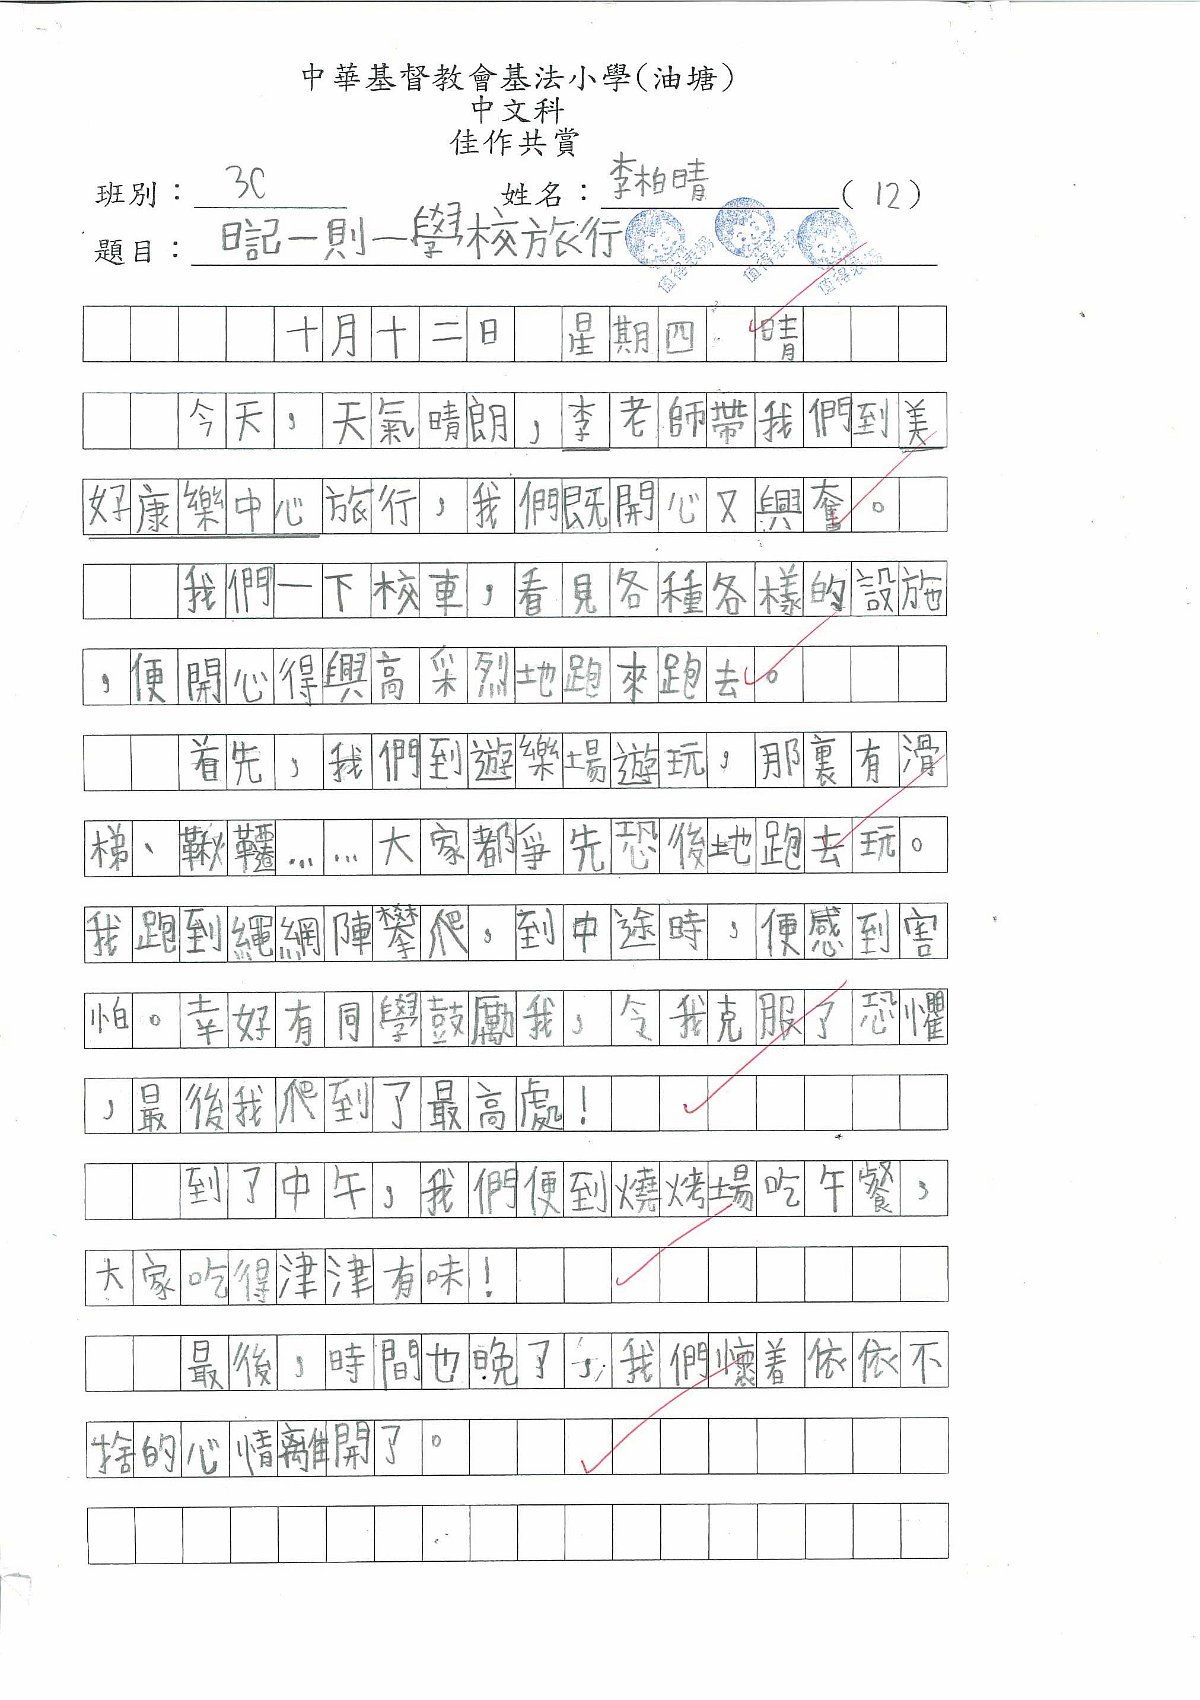 中華基督教會基法小學(油塘)
中文科
佳作共賞
班別：3C 姓名：李柏晴(12)
題目：日記一則—學校旅行
值得表揚 值得表揚 值得表揚
十月十二日 星期四 晴
今天，天氣晴朗，李老師帶我們到美
好康樂中心旅行，我們既開心又興奮。
我們一下校車，看見各種各樣的設施
，便開心得興高采烈地跑來跑去。
首先，我們到遊樂場遊玩，那裏有滑
梯、鞦韆……大家都爭先恐後地跑去玩。
我跑到繩網陣攀爬，到中途時，便感到害
怕。幸好有同學鼓勵我，令我克服了恐懼
，最後我爬到了最高處！
到了中午，我們便到燒烤場吃午餐，
大家吃得津津有味！
最後，時間也晚了，我們懷着依依不
捨的心情離開了。